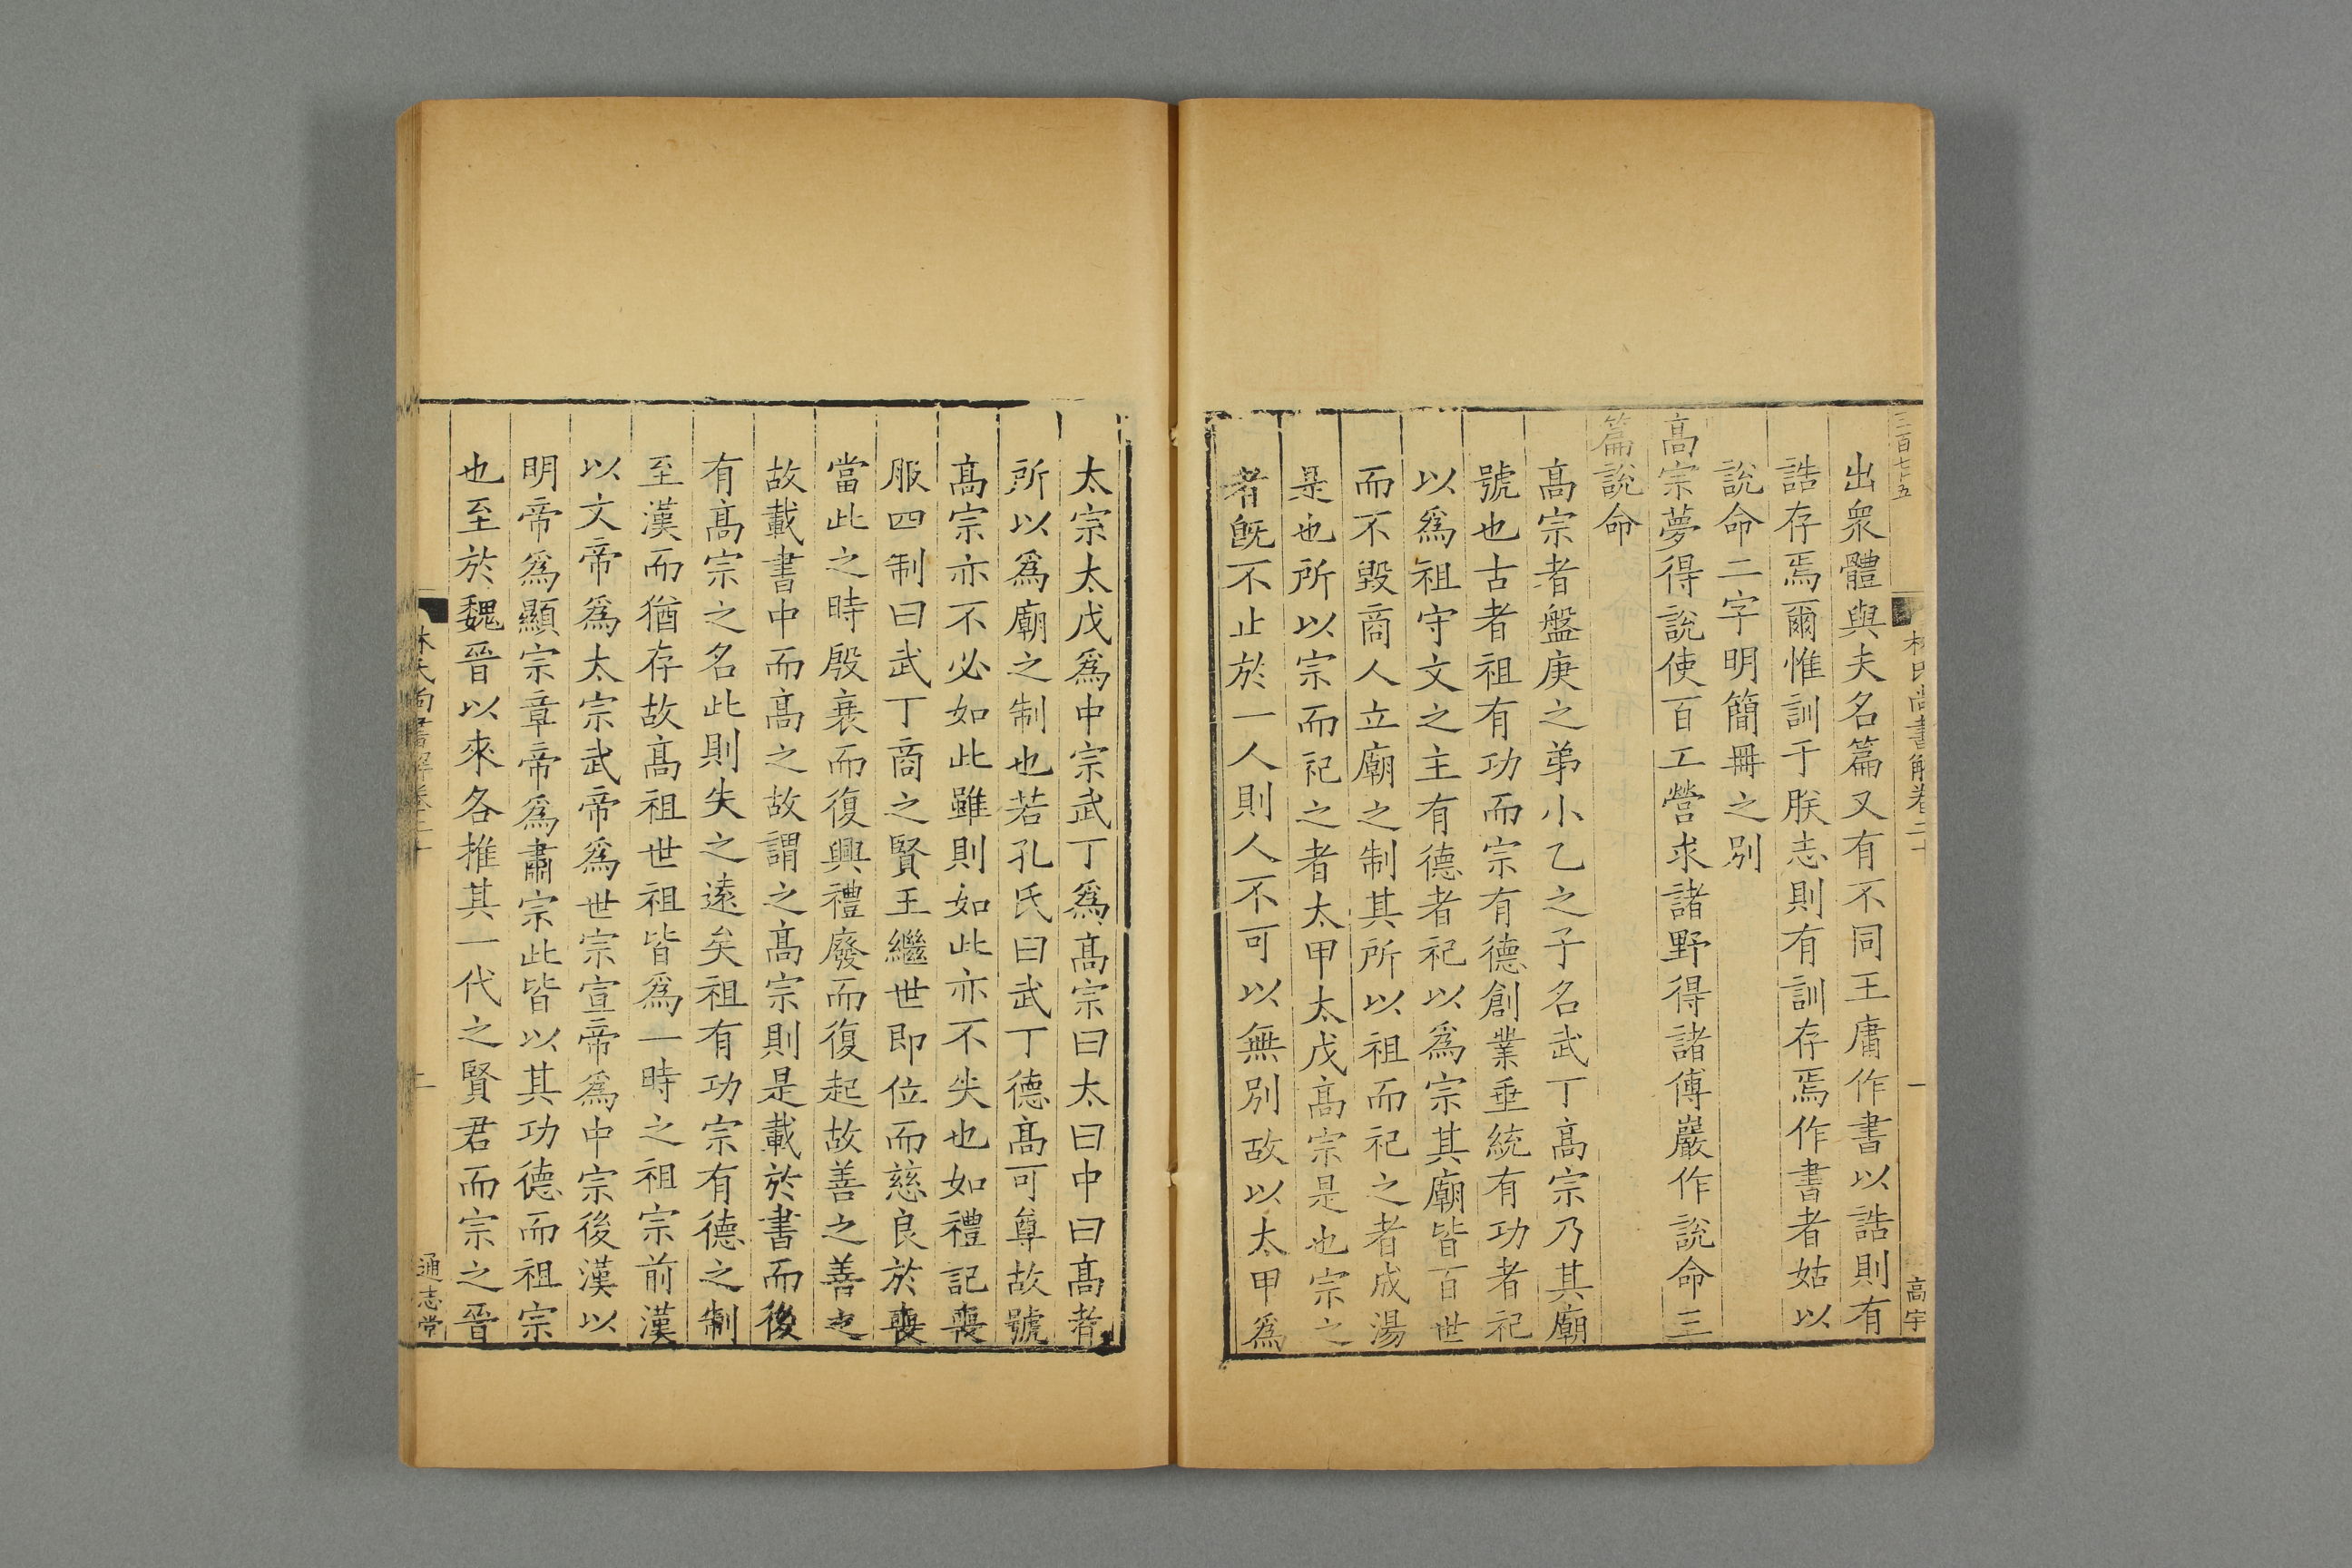 三百七十五
林氏尚書解卷二十
一
高宇
出衆體與夫名篇又有不同王庸作書以誥則有
誥存焉爾惟訓于朕志則有訓存焉作書者姑以
說命二字明簡冊之別
髙宗夢得說使百工營求諸野得諸傅巖作說命三
篇說命
髙宗者盤庚之弟小乙之子名武丁髙宗乃其廟
號也古者祖有功而宗有德創業垂統有功者祀
以爲祖守文之主有德者祀以爲宗其廟皆百世
而不毀商人立廟之制其所以祖而祀之者成湯
是也所以宗而祀之者太甲太戊髙宗是也宗之
者旣不止於一人則人不可以無別故以太甲爲
太宗太戊爲中宗武丁爲髙宗曰太曰中曰髙者
所以爲廟之制也若孔氏曰武丁德髙可尊故號
髙宗亦不必如此雖則如此亦不失也如禮記喪
服四制曰武丁商之賢王繼世即位而慈良於喪
當此之時殷衰而復興禮廢而復起故善之善之
故載書中而髙之故謂之髙宗則是載於書而後
有髙宗之名此則失之遠矣祖有功宗有德之制
至漢而猶存故髙祖世祖皆爲一時之祖宗前漢
以文帝爲太宗武帝爲世宗宣帝爲中宗後漢以
明帝爲顯宗章帝爲肅宗此皆以其功德而祖宗
也至於魏晉以來各推其一代之賢君而宗之晉
林氏尚書解卷二十
通志堂